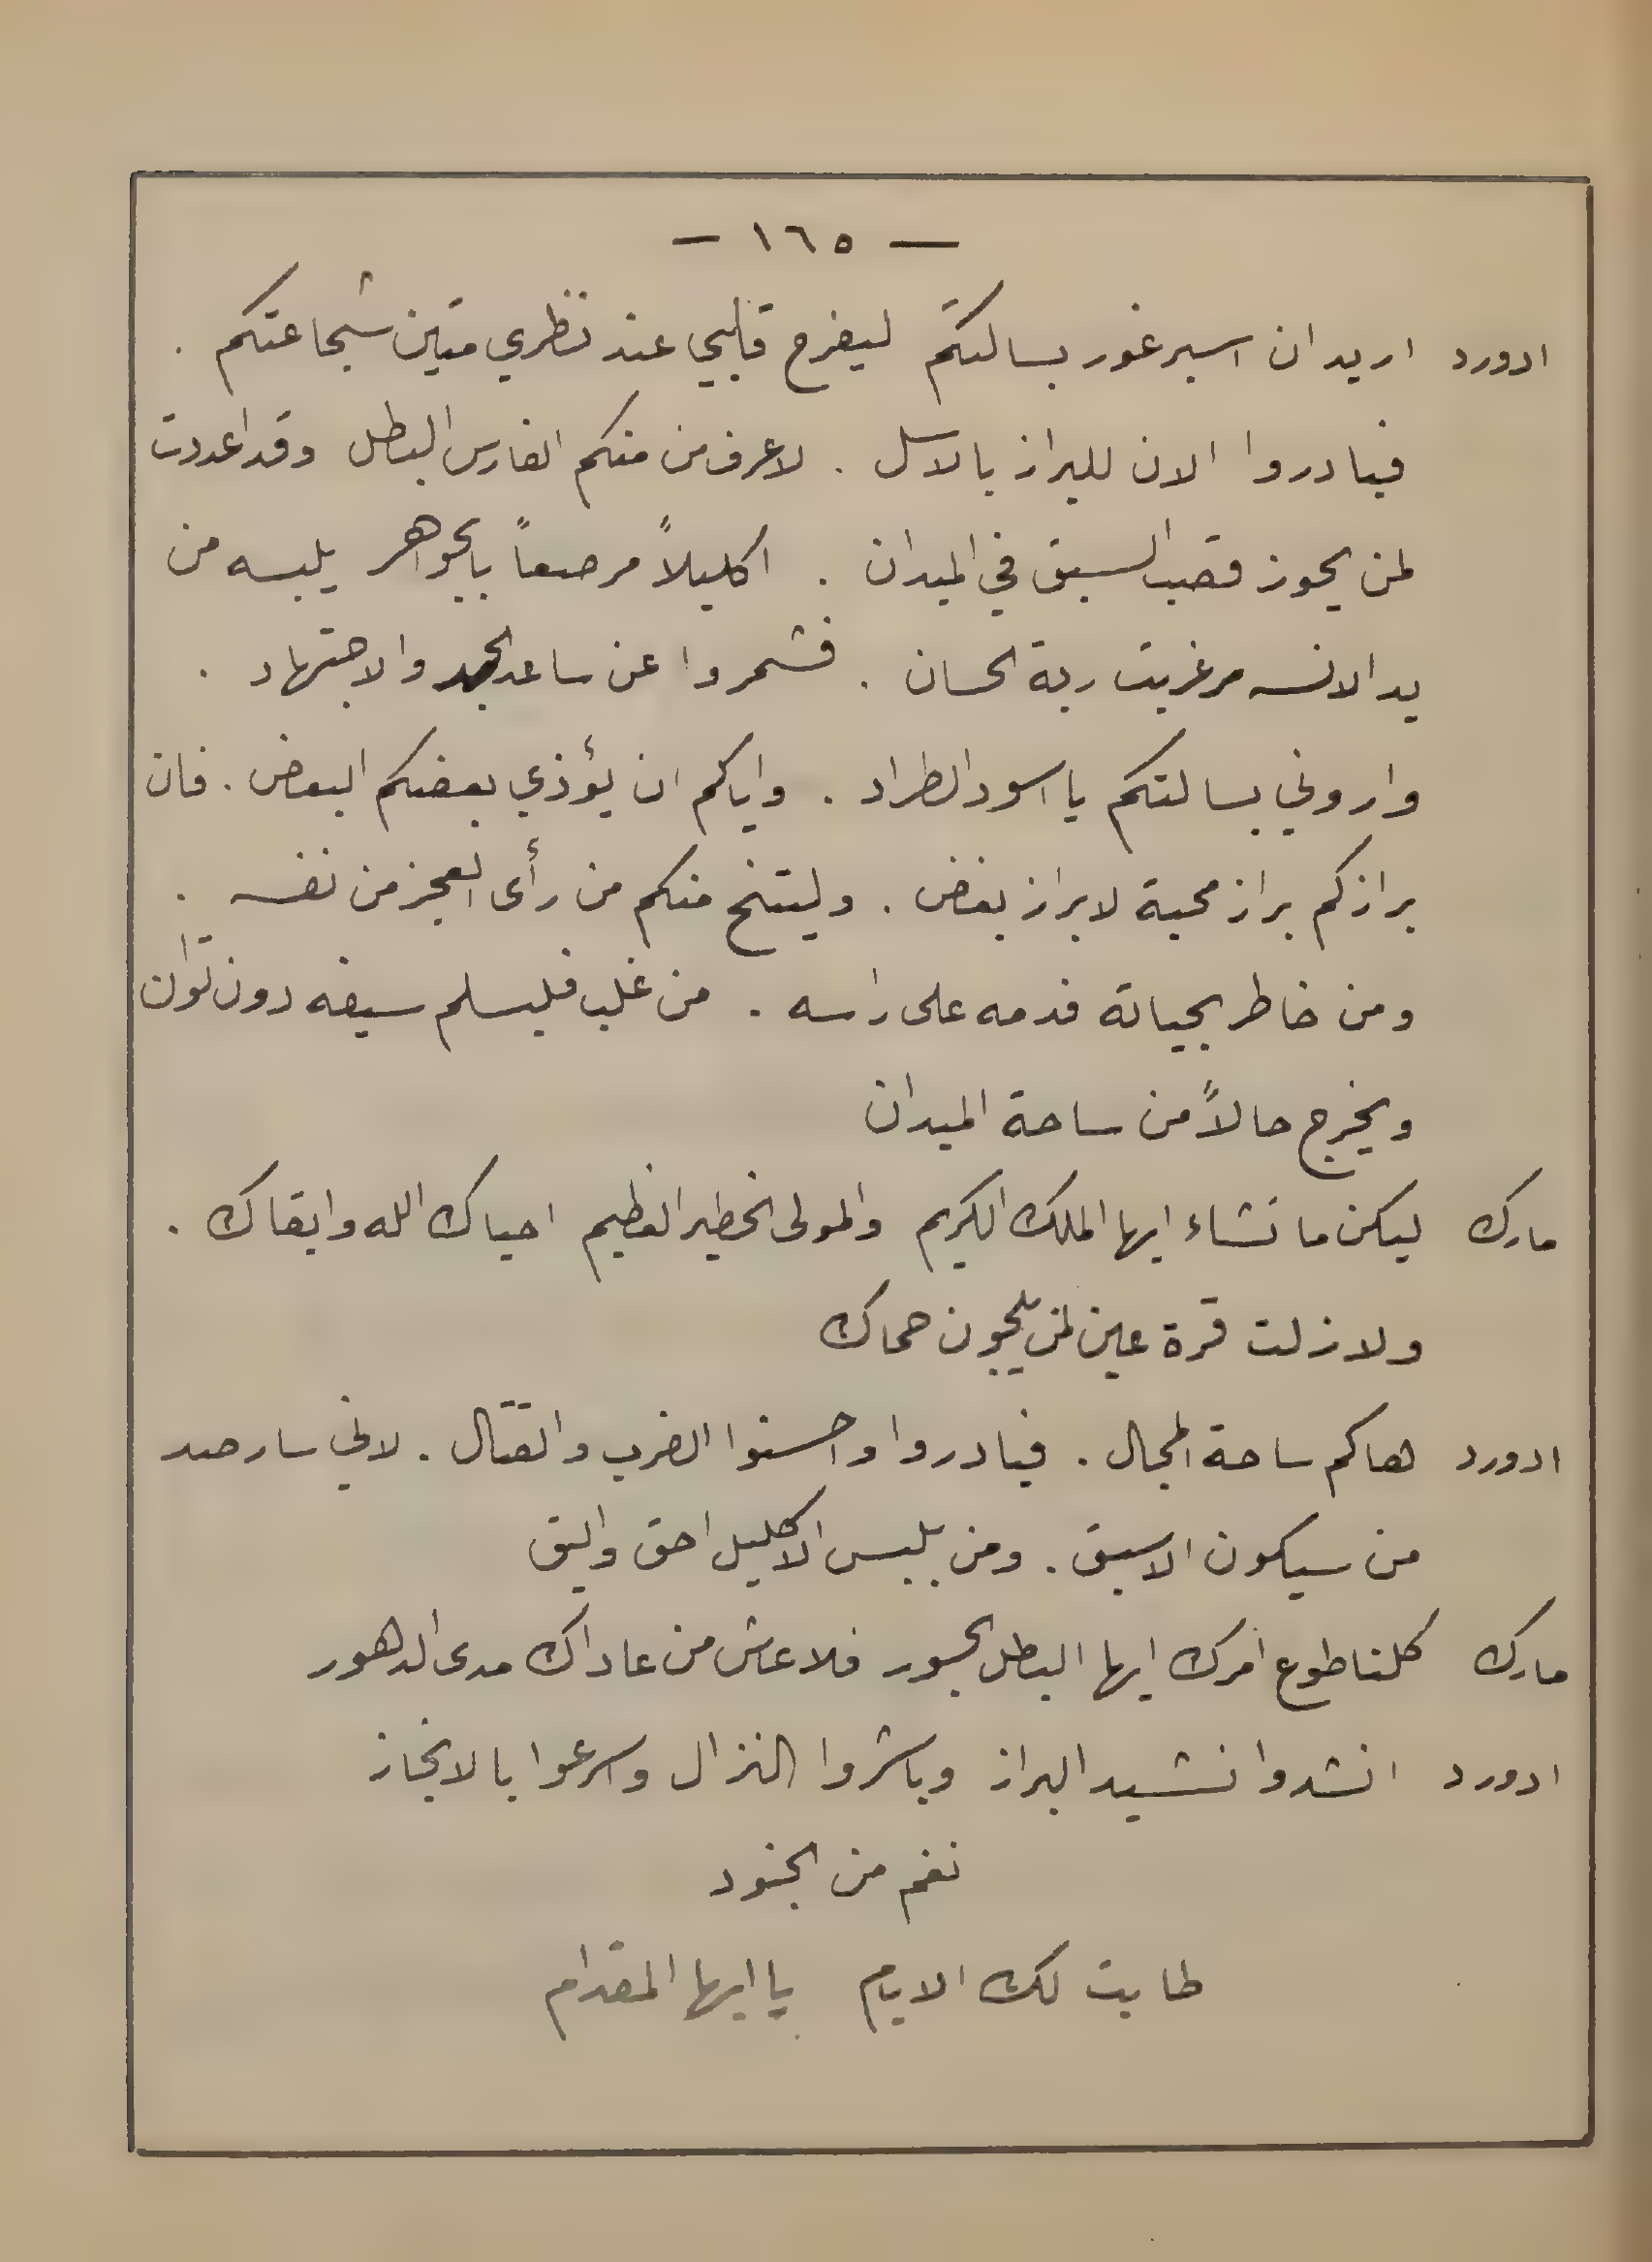 — ١٦٥ —
ادورد اريد ان اسبر غور بسالتكم ليفرح قلبي عند نظري متين شجاعتكم .
فبادروا الان للبراز بالاسل . لاعرف من منكم الفارس البطل وقد اعددت
لمن يحوز قصب السبق في الميدان . اكليلاً مرصعاً بالجواهر يلبسه من
يد الانسه مرغريت ربة الحسان . فشمروا عن ساعد الجد والاجتهاد .
واروني بسالتكم يا اسود الطراد . واياكم ان يؤذي بعضكم البعض . فان
برازكم براز محبة لا براز بغض . وليتنح منكم من رأى العجز من نفسه .
ومن خاطر بحياته فدمه على راسه . من غلب فليسلم سيفه دون توان
ويخرج حالاً من ساحة الميدان
مارك ليكن ما تشاء ايها الملك الكريم والمولى الخطير العظيم احياك الله وابقاك .
ولا زلت قرة عين لمن يلجون حماك
ادورد هاكم ساحة المجال . فبادروا واحسنوا الضرب والقتال . لاني سارصد
من سيكون الاسبق . ومن بلبس الاكليل احق واليق
مارك كلنا طوع امرك ايها البطل الجسور فلا عاش من عاداك مدى الدهور
ادورد انشدوا نشيد البراز وباشروا النزال واسرعوا بالانجاز
نغم من الجنود
طابت لك الايام يا ايها المقدام